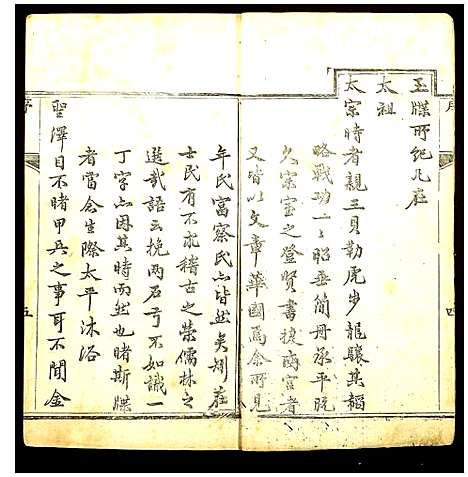 序
四
玉牒所紀凡在
太祖
太宗時者親王貝勒虎步龍驤其韜
略戰功一一昭垂簡冊承平既
久宗室之登賢書提南宮者
又皆以文章華國焉余所見
年氏富察氏亦皆然矣矧在
士民有不求稽古之榮儒林之
選哉語云挽兩石弓不如識一
丁字亦因其時而然也睹斯牒
者當念生際太平沐浴
聖澤目不睹甲兵之事耳不聞金
序
五